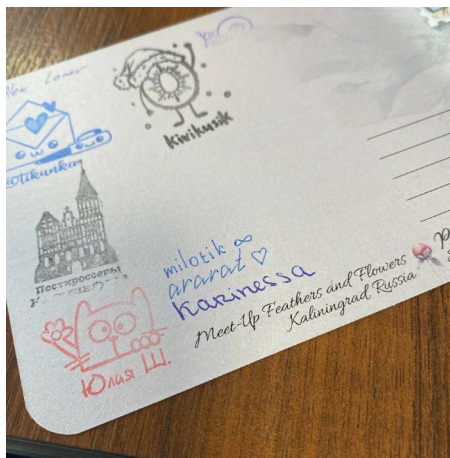 Kivikusik
Посткроссеры
milotik ∞
ararat ♡
Karinessa
Meet-Up Feathers and Flowers
Kaliningrad, Russia
Юлия Ш.